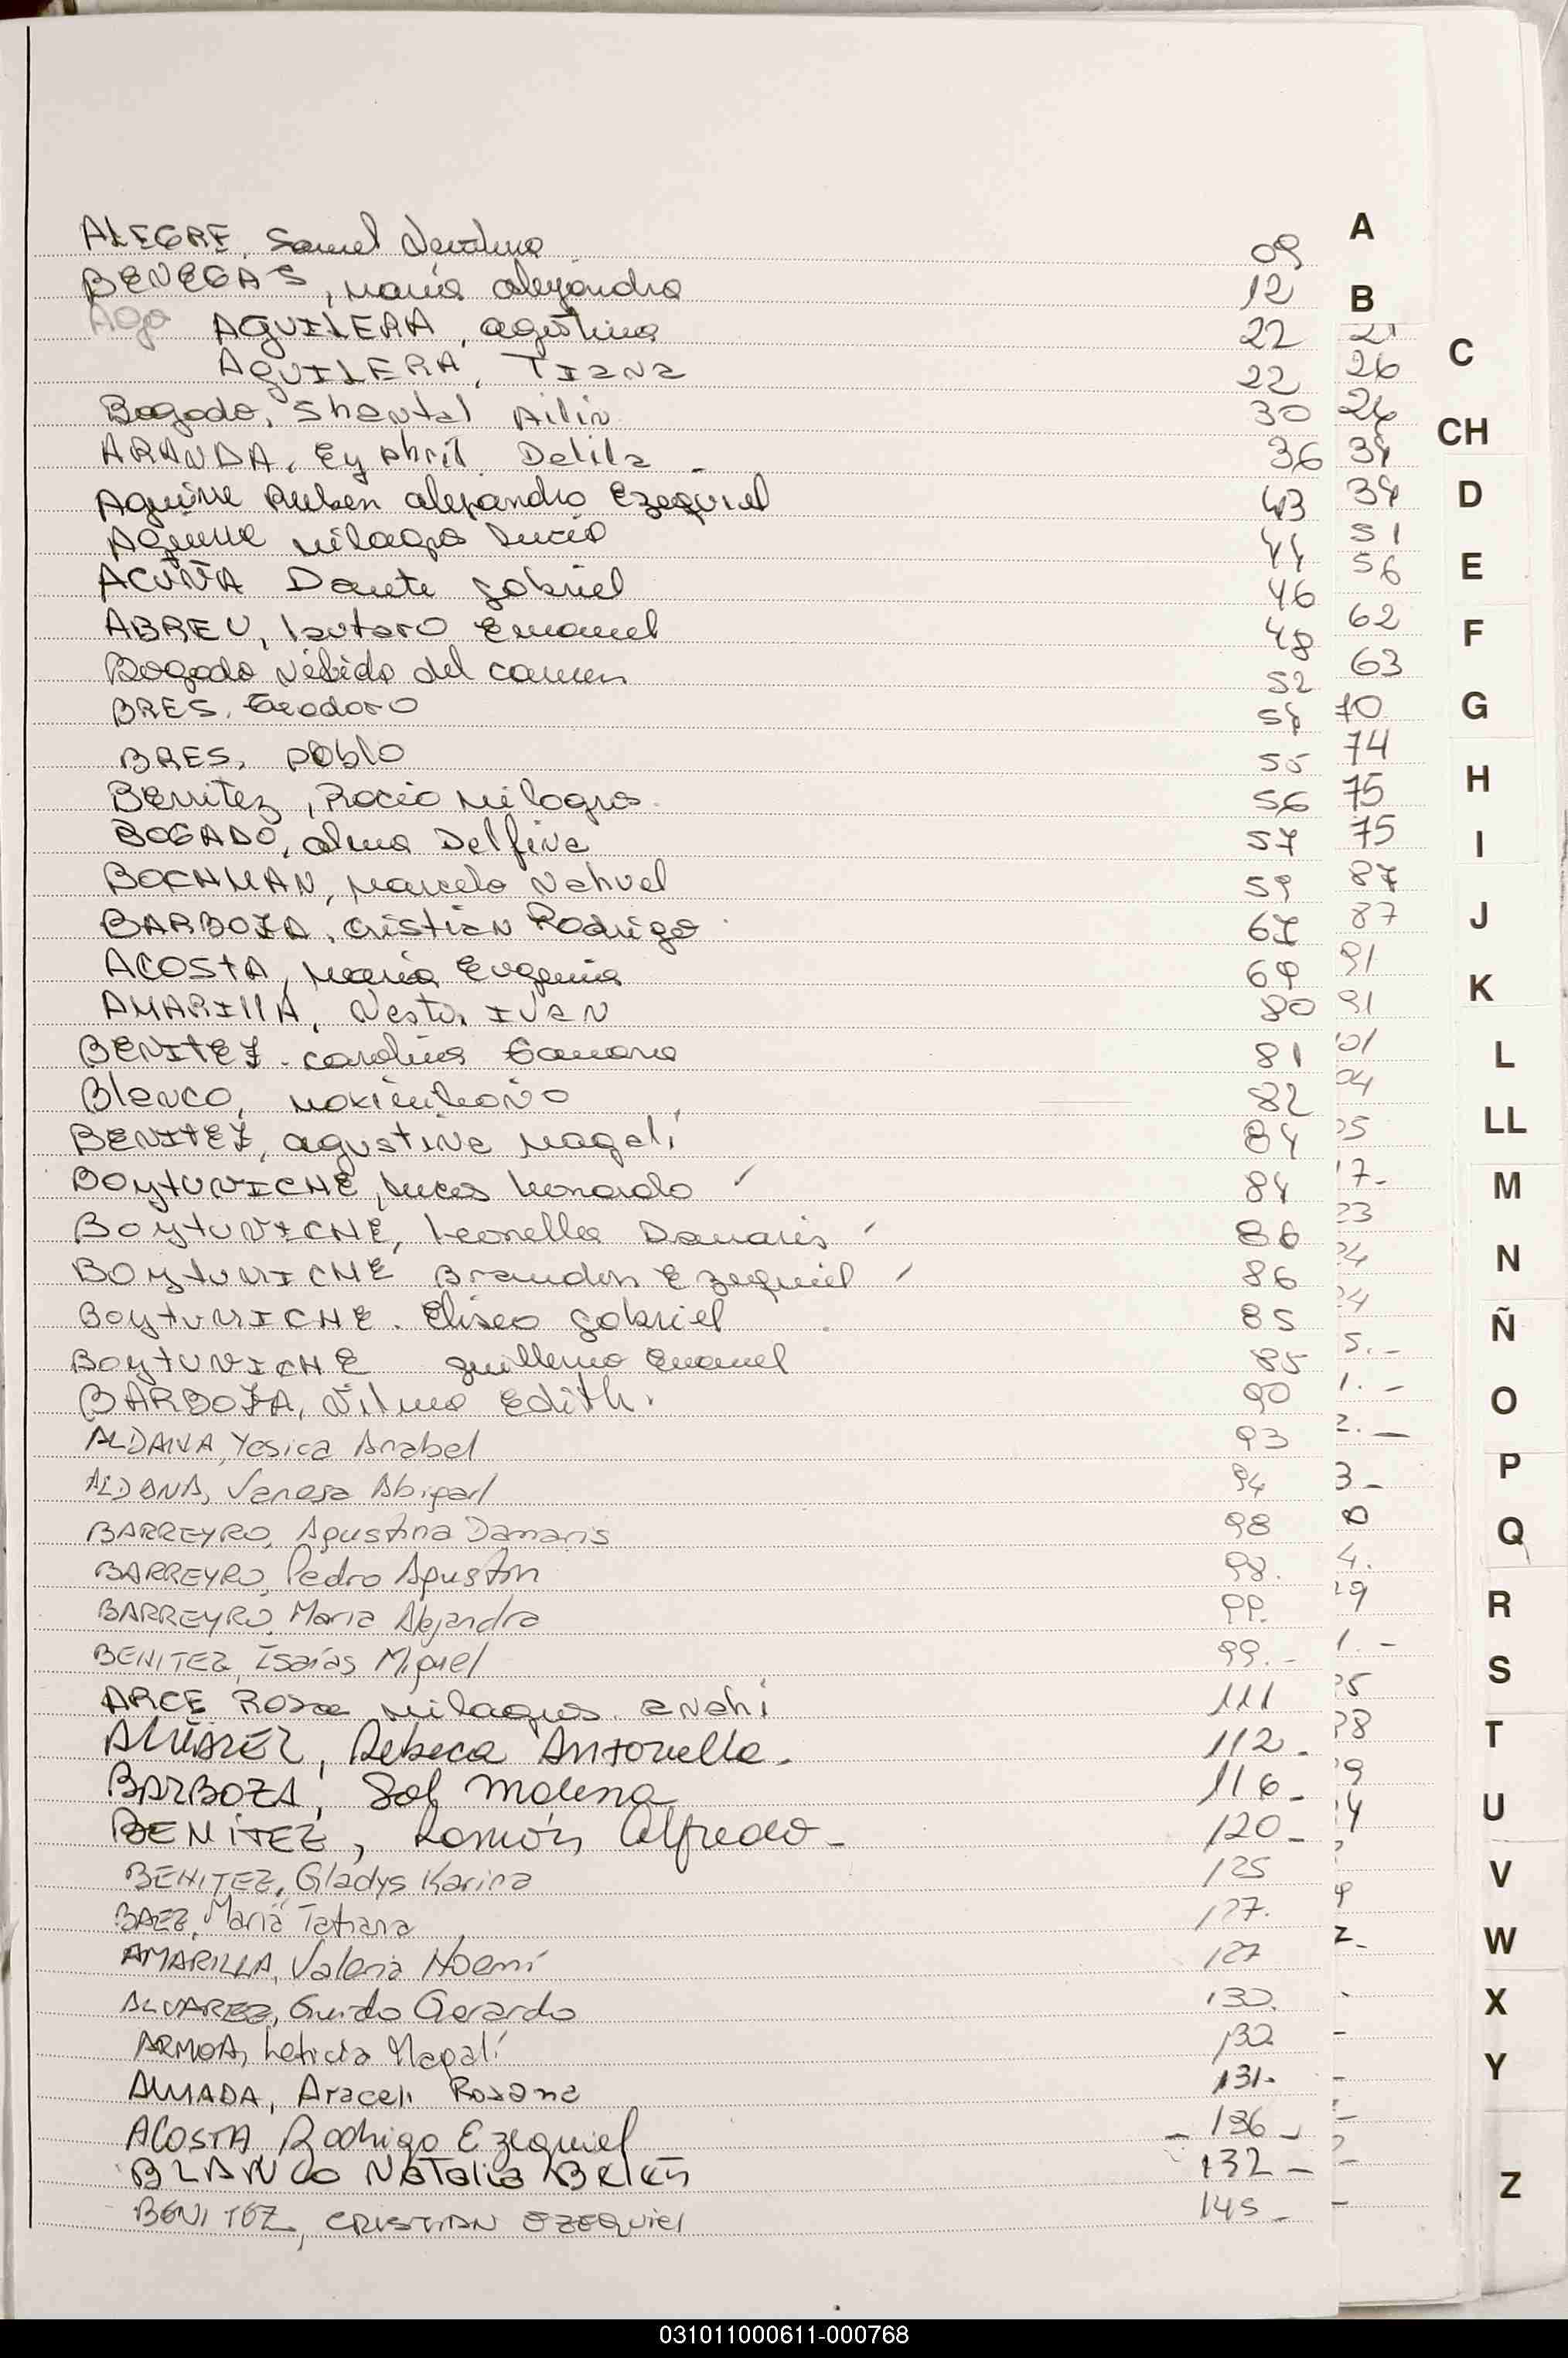 ALEGRE, Samuel 09
BENEGAS, María Alejandra 12
Ago AGUILERA, agostina 22
AGUILERA, Tiana 22
Bogado, Shantal Ailin 30
ARANDA, Ey Abril Delila - 36
Aguirre Ruben alejandro Ezequiel 43
Aguirre Milagros Lucia 44
ACUÑA Dante Gabriel 46
ABREU, lautaro Emanuel 48
Bogado Nélida del carmen 52
BRES, Teodoro 54
BRES, Pablo 55
Benitez, Rocio Milagros 56
BOGADO, alma Delfina 57
BOCHMAN, Marcelo Nahuel 59
BARBOZA, Cristian Rodrigo 67
ACOSTA, María Eugenia 69
AMARIllA, Nestor IVAN 80
BENITEZ. carolina 81
Blanco, Maximiliano 82
BENITEZ, agustina Magalí 84
BOytUVICHE, Lucas Leonardo 84
BOytUVICHE, Leonella Damaris 86
BOytUVICHE Brandon Ezequiel 86
BOytUVICHE. Eliseo Gabriel 85
BOytUVICHE guillermo Emanuel 85
BARBOZA, Vilma Edith. 90
ALDANA, Yesica Anabel 93
ALDANA, Vanesa Abigail 94
BARREYRO, Agustina Damaris 98
BARREYRO, Pedro Agustin 98.
BARREYRO, Maria Alejandra 99.
BENITEZ, Isaías Miguel 99.-
ARCE Rosa Milagros anahi 111
ALVAREZ, Rebeca Antonella. 112-
BARBOZA, Sol Molena 116-
BENÍTEZ, Ramón Alfredo- 120-
BENITEZ, Gladys Karina 125
BAEZ, María Tatiana 127.
AMARILLA, Valeria Noemí 127
ALVAREZ, Guido Gerardo 130.
ARMOA, Leticia Magalí 132
ALMADA, Araceli Rosana 131.
ACOSTA, Rodrigo Ezequiel - 136-
BLANCO Natalia Belén 132-
BENITEZ, CRISTIAN EZEQUIEL 145-
21
26
26
34
39
51
56
62
63
70
74
75
75
87
87
91
91
A
B
C
CH
D
E
F
G
H
I
J
K
L
LL
M
N
Ñ
O
P
Q
R
S
T
U
V
W
X
Y
Z
031011000611-000768